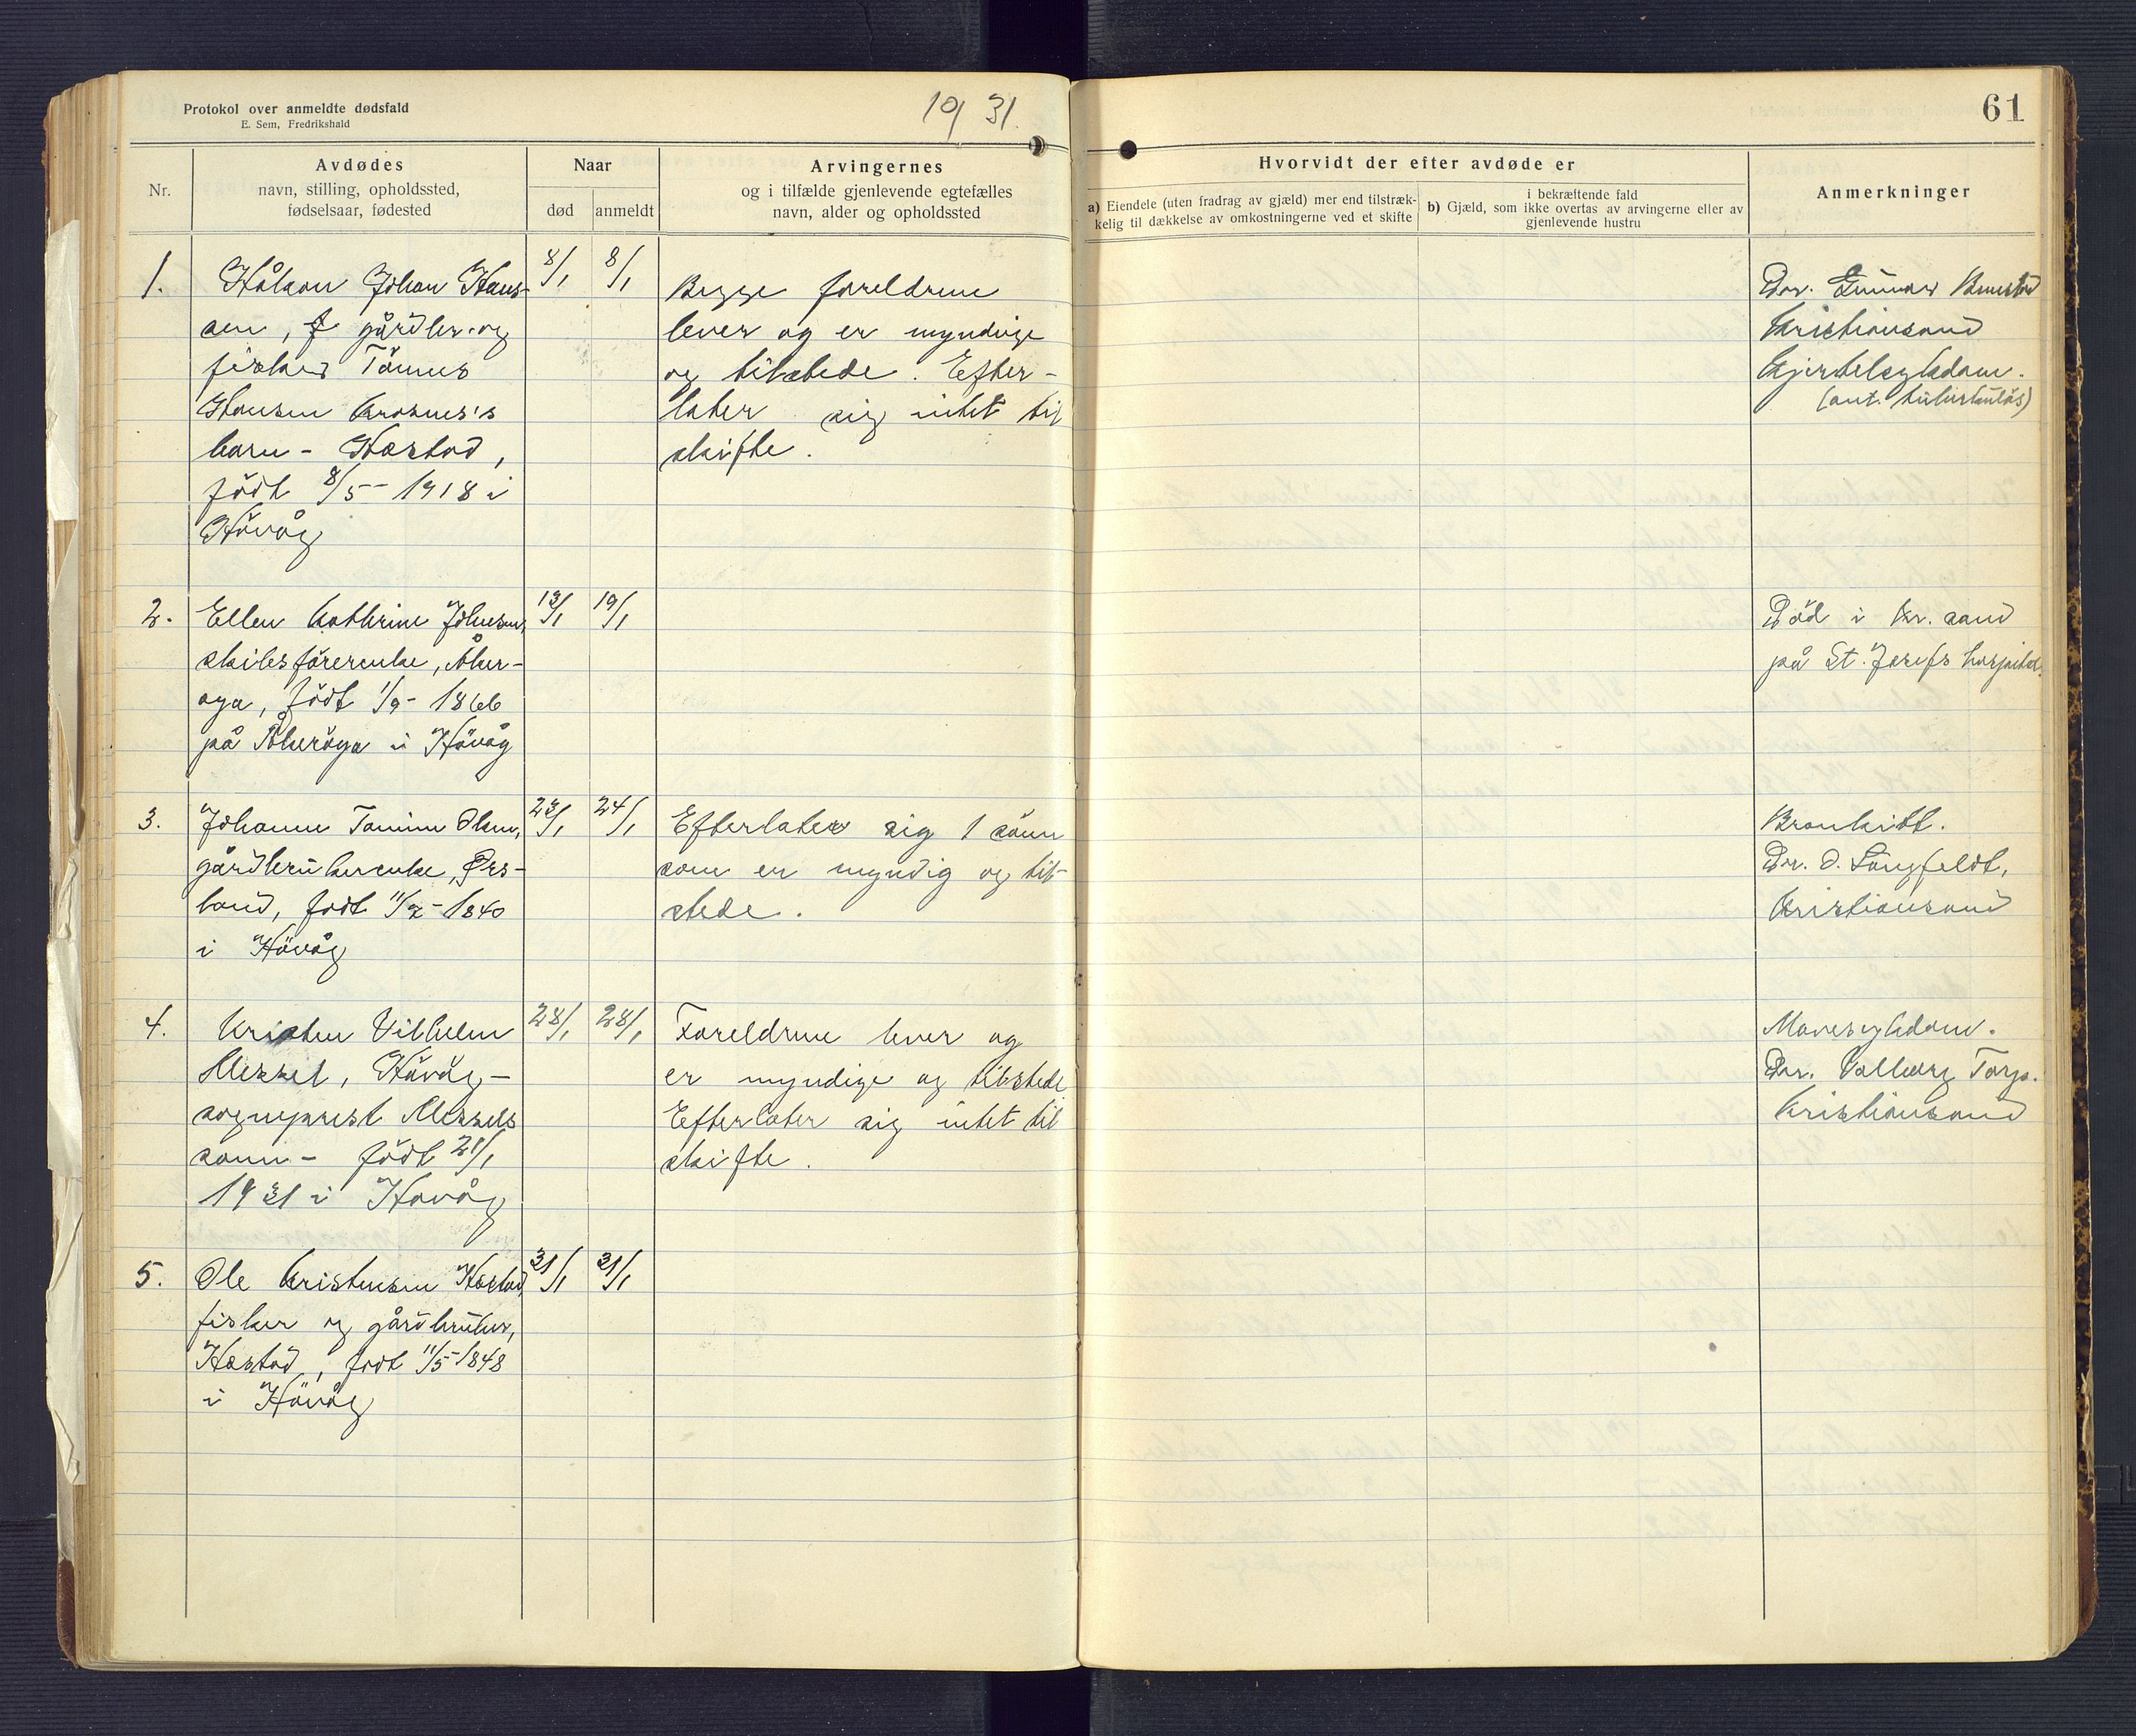 Protokol over anmeldte dødsfald
E. Sem, Fredrikshald
19 31.
61
Nr.
Avdødes
navn, stilling, opholdssted,
fødselsaar, fødested
Naar
død
anmeldt
Arvingernes
og i tilfælde gjenlevende egtefælles
navn, alder og opholdssted
Hvorvidt der efter avdøde er
a) Eiendele (uten fradrag av gjæld) mer end tilstræk-
kelig til dækkelse av omkostningerne ved et skifte
i bekræftende fald
b) Gjæld, som ikke overtas av arvingerne eller av
gjenlevende hustru
Anmerkninger
1.
Håkon Johan Hans-
sen, gårdbr. og
fisker Tönnes
Hansen
barn - Hæstad,
födt 8/5 - 1918 i
Hövåg
8/1
8/1
Begge foreldrene
lever og er myndige
og tilstede. Efter-
later sig intet til
skifte.
Dr. Gunnar
Kristiansand
Hjertesykdom.
2.
Ellen Kathrine Johnsen,
skibsförerenke, Åker-
øya, födt 1/9 - 1866
på Åkeröya i Hövåg
13/1
19/1
Död i Kr. sand
på St. Josefs hospital.
3.
Johanne Tomine Olsen,
gårdbrukerenke, Ørs-
land, födt 11/2 - 1840
i Hövåg
23/1
24/1
Efterlater sig 1 sönn
som er myndig og til-
stede.
Bronkitt.
Dr. O. Langfeldt,
Kristiansand
4.
Kristen Vilhelm
Mezzel, Hövåg -
sogneprest Mezzels
sönn - födt 21/1
1931 i Hövåg
28/1
28/1
Foreldrene lever og
er myndige og tilstede
Efterlater sig intet til
skifte.
Mavesykdom.
Dr. Valborg Torp.
Kristiansand
5.
Ole Kristensen Hæstad,
fisker og gårdbruker,
Hæstad, födt 11/5 - 1848
i Hövåg
31/1
31/1